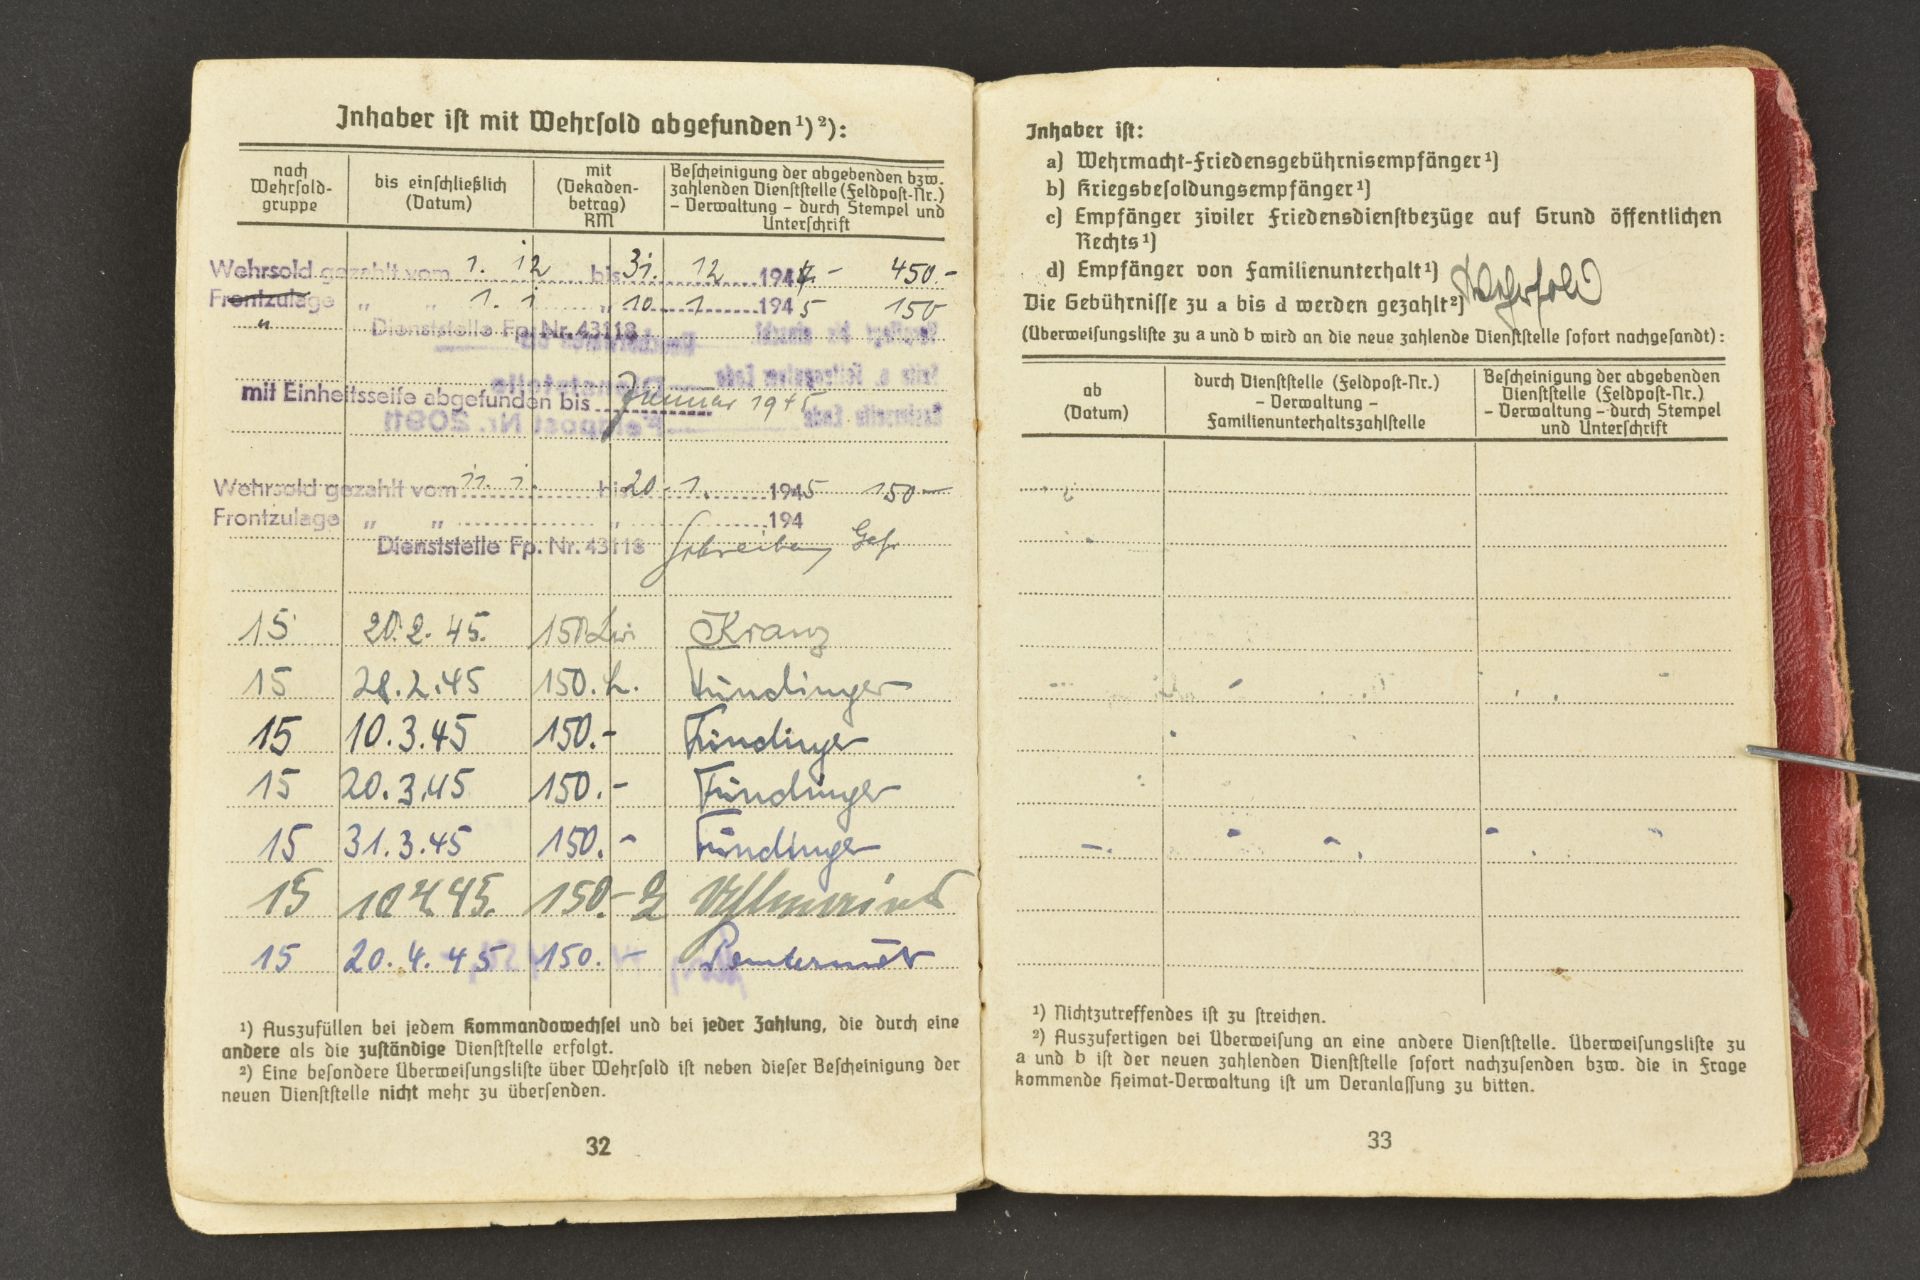 Inhaber ist mit Wehrsold abgefunden ¹) ²):
nach Wehrsold-gruppe
bis einschließlich (Datum)
mit (Dekaden-betrag) RM
Bescheinigung der abgebenden bzw. zahlenden Dienststelle (Feldpost-Nr.) – Verwaltung – durch Stempel und Unterschrift
Wehrsold gezahlt vom 1. 12 bis 31. 12 1944 - 450.-
Frontzulage " " 1. 1 " 10. 1. 1945 150
" Dienststelle Fp. Nr. 43118
mit Einheitsseife abgefunden bis Januar 1945
Dienststelle
Feldpost Nr. 20911
Wehrsold gezahlt vom 11. 1. bis 20. 1. 1945 150.-
Frontzulage " " " 194
Dienststelle Fp. Nr. 43118
15 20. 2. 45. 150 Kranz
15 28. 2. 45 150. Fündinger
15 10. 3. 45 150.- Fündinger
15 20. 3. 45 150.- Fündinger
15 31. 3. 45 150.- Fündinger
15 10 4. 45. 150.-
15 20. 4. 45 150.-
¹) Auszufüllen bei jedem Kommandowechsel und bei jeder Zahlung, die durch eine
andere als die zuständige Dienststelle erfolgt.
²) Eine besondere Überweisungsliste über Wehrsold ist neben dieser Bescheinigung der
neuen Dienststelle nicht mehr zu übersenden.
32
Inhaber ist:
a) Wehrmacht-Friedensgebührnisempfänger ¹)
b) Kriegsbesoldungsempfänger ¹)
c) Empfänger ziviler Friedensdienstbezüge auf Grund öffentlichen
Rechts ¹)
d) Empfänger von Familienunterhalt ¹)
Die Gebührnisse zu a bis d werden gezahlt ²)
(Überweisungsliste zu a und b wird an die neue zahlende Dienststelle sofort nachgesandt):
ab (Datum)
durch Dienststelle (Feldpost-Nr.) – Verwaltung – Familienunterhaltszahlstelle
Bescheinigung der abgebenden Dienststelle (Feldpost-Nr.) – Verwaltung – durch Stempel und Unterschrift
¹) Nichtzutreffendes ist zu streichen.
²) Auszufertigen bei Überweisung an eine andere Dienststelle. Überweisungsliste zu
a und b ist der neuen zahlenden Dienststelle sofort nachzusenden bzw. die in Frage
kommende Heimat-Verwaltung ist um Veranlassung zu bitten.
33